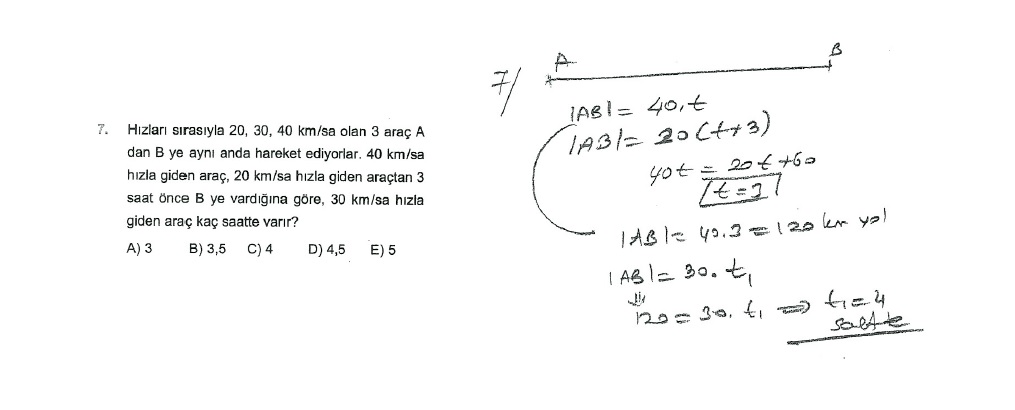 7. Hızları sırasıyla 20, 30, 40 km/sa olan 3 araç A
dan B ye aynı anda hareket ediyorlar. 40 km/sa
hızla giden araç, 20 km/sa hızla giden araçtan 3
saat önce B ye vardığına göre, 30 km/sa hızla
giden araç kaç saatte varır?
A) 3 B) 3,5 C) 4 D) 4,5 E) 5
7/ A B
|AB| = 40.t
|AB| = 20(t+3)
40t = 20t+60
t=3
|AB| = 40.3 = 120 km yol
|AB| = 30.t₁
⇓
120 = 30.t₁ ⇒ t₁=4
saatte